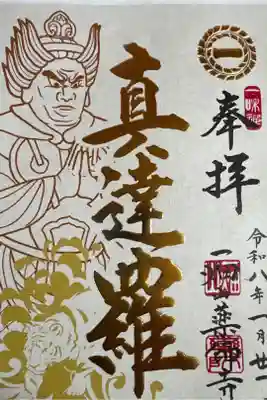 一
奉拝
令和八年一月廿一
真達羅
一畑山薬師寺